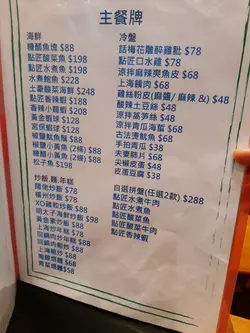 主餐牌
海鮮
糖醋魚塊 $88
點匠酸菜魚 $198
點匠水煮魚 $198
水煮鮑魚 $228
土豪酸菜海鮮 $248
點匠香辣蝦 $188
點匠香辣蟹 $188
黃金蝦球 $128
宮保蝦球 $128
椒鹽魷魚鬚 $88
椒鹽小黃魚 (2條) $88
糖醋小黃魚 (2條) $88
松子魚 $198
炒飯,麵,年糕
揚州炒飯 $78
XO雞粒炒飯 $88
明太子海鮮炒飯 $98
黃金素炒飯 $88
上海炒年糕 $78
回鍋肉炒飯 $88
上海粗炒 $88
青菜煨麵 $58
冷盤
話梅花雕醉雞肶 $78
點匠口水雞 $78
涼拌麻辣爽魚皮 $68
上海醃肉 $68
雞絲粉皮(麻醬/麻辣 &) $48
酸辣土豆絲 $48
涼拌萵筍絲 $48
涼拌青瓜海蜇 $68
古法燙魷魚 $68
手拍青瓜 $38
夫妻肺片 $68
尖椒皮蛋 $48
皮蛋豆腐 $38
自選拼盤(任選2款) $288
點匠水煮牛肉
點匠水煮魚
點匠酸菜魚
點匠酸菜牛肉
點匠香辣蝦